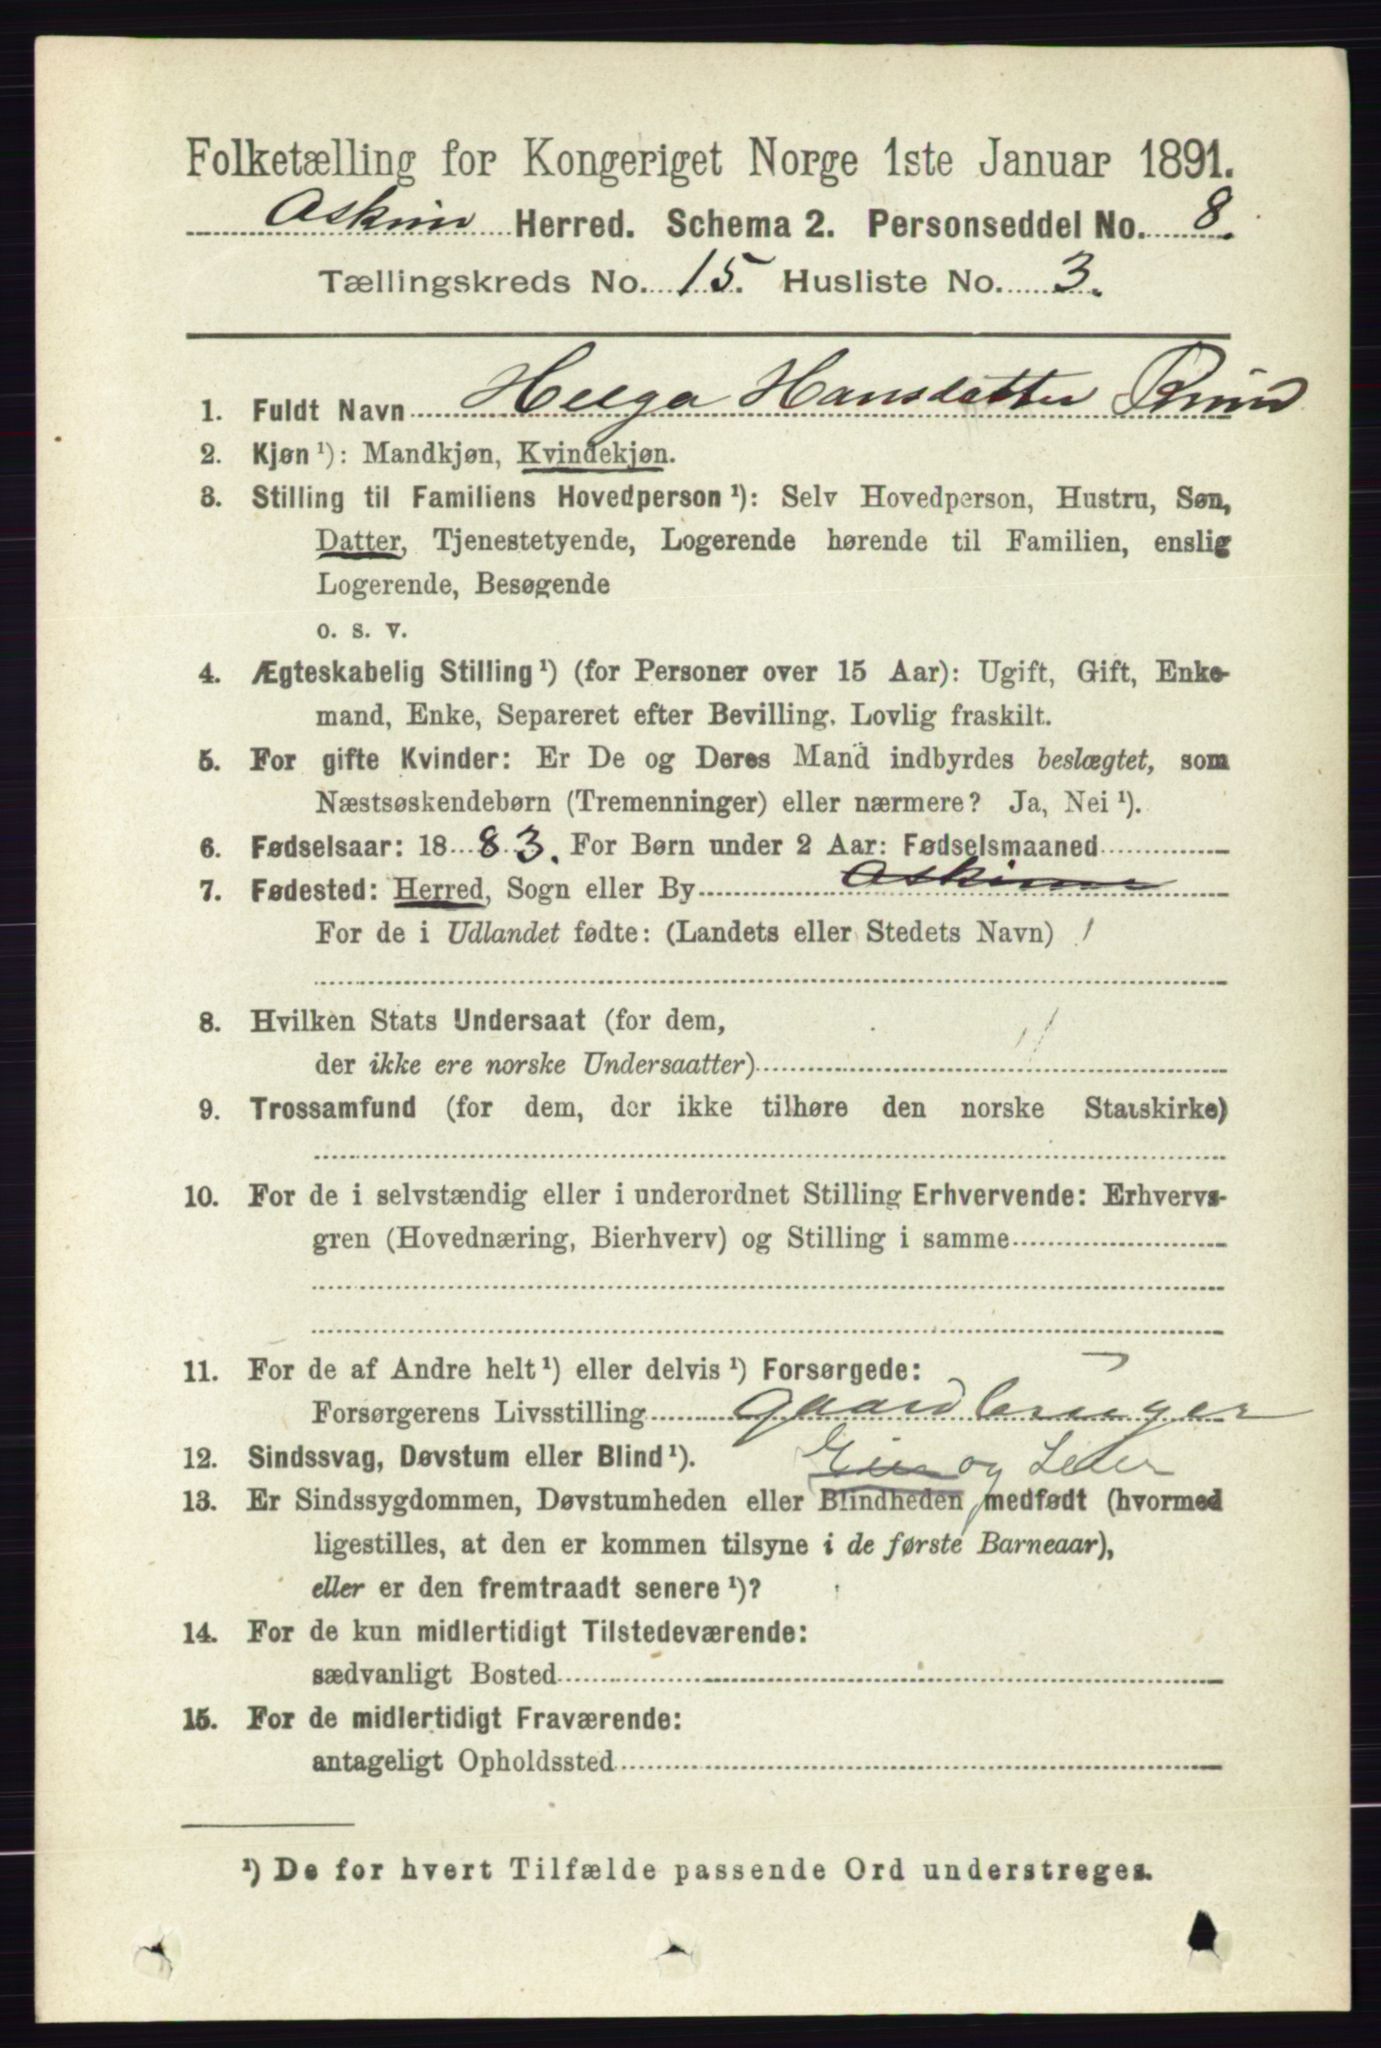 Folketælling for Kongeriget Norge 1ste Januar 1891.
Askim Herred. Schema 2. Personseddel No. 8.
Tællingskreds No. 15. Husliste No. 3.
1. Fuldt Navn Helga Hansdatter
2. Kjøn ¹): Mandkjøn, Kvindekjøn.
3. Stilling til Familiens Hovedperson ¹): Selv Hovedperson, Hustru, Søn,
Datter, Tjenestetyende, Logerende hørende til Familien, enslig
Logerende, Besøgende
o. s. v.
4. Ægteskabelig Stilling ¹) (for Personer over 15 Aar): Ugift, Gift, Enke-
mand, Enke, Separeret efter Bevilling. Lovlig fraskilt.
5. For gifte Kvinder: Er De og Deres Mand indbyrdes beslægtet, som
Næstsøskendebørn (Tremenninger) eller nærmere? Ja, Nei ¹).
6. Fødselsaar: 1883. For Børn under 2 Aar: Fødselsmaaned
7. Fødested: Herred, Sogn eller By Askim
For de i Udlandet fødte: (Landets eller Stedets Navn)
8. Hvilken Stats Undersaat (for dem,
der ikke ere norske Undersaatter)
9. Trossamfund (for dem, der ikke tilhøre den norske Statskirke)
10. For de i selvstændig eller i underordnet Stilling Erhvervende: Erhvervs-
gren (Hovednæring, Bierhverv) og Stilling i samme
11. For de af Andre helt ¹) eller delvis ¹) Forsørgede:
Forsørgerens Livsstilling Gaardbruger
12. Sindssvag, Døvstum eller Blind ¹). Eier og
13. Er Sindssygdommen, Døvstumheden eller Blindheden medfødt (hvormed
ligestilles, at den er kommen tilsyne i de første Barneaar),
eller er den fremtraadt senere ¹)?
14. For de kun midlertidigt Tilstedeværende:
sædvanligt Bosted
15. For de midlertidigt Fraværende:
antageligt Opholdssted
¹) De for hvert Tilfælde passende Ord understreges.